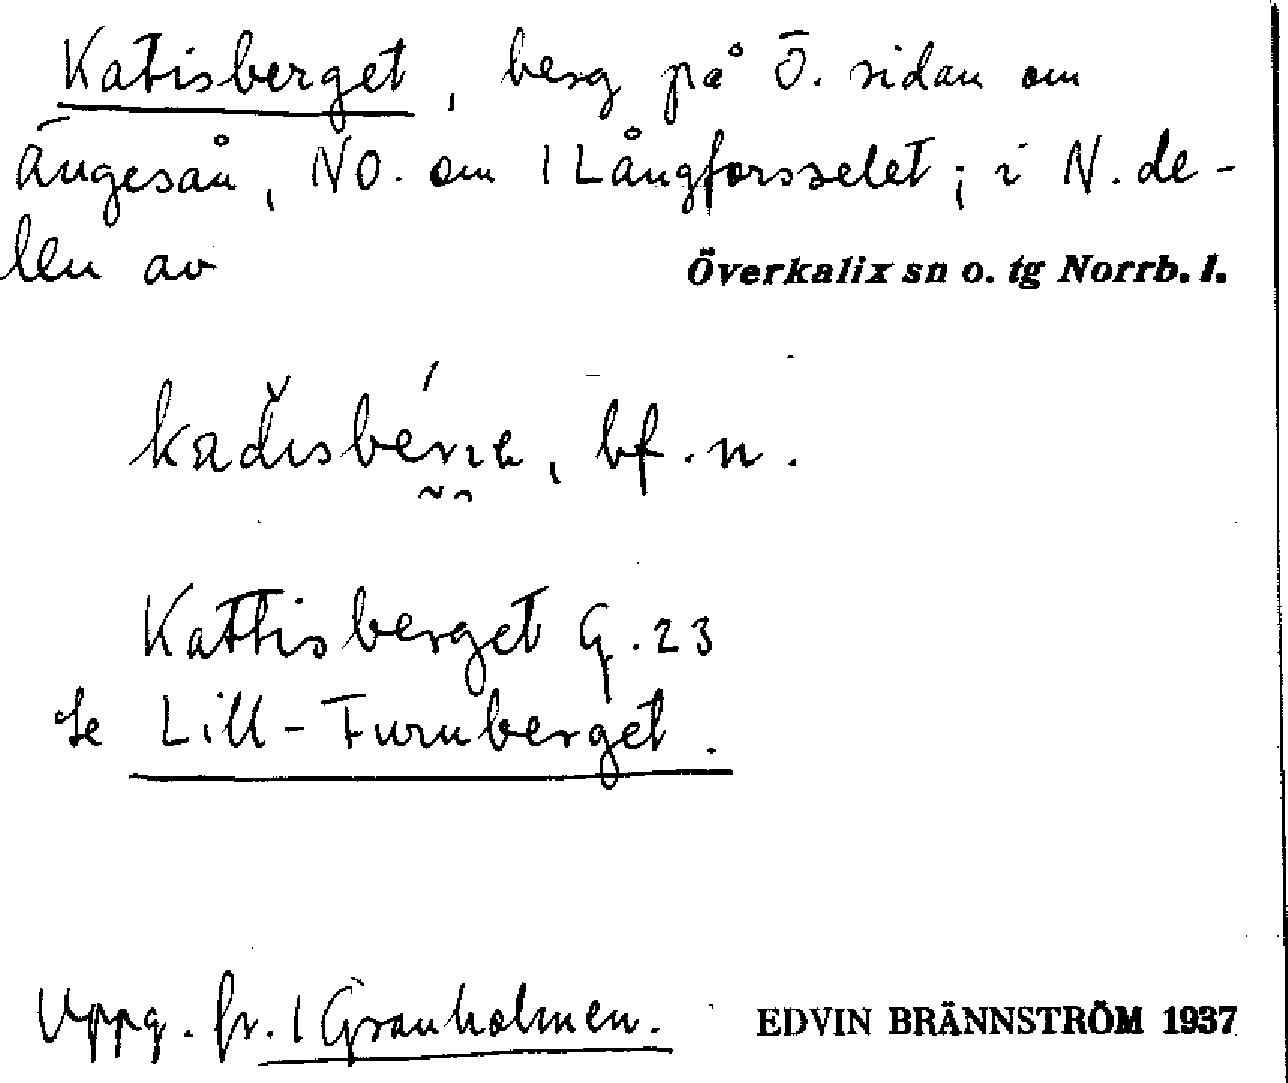 Katisberget, berg på Ö. sidan om
Ängesån, NO. om 1 Långforsselet; i N. de-
len av
Överkalix sn o. tg Norrb. l.
bf. n.
Kattisberget G. 23
Se Lill-Furuberget.
Uppg. fr. 1 Granholmen.
EDVIN BRÄNNSTRÖM 1937